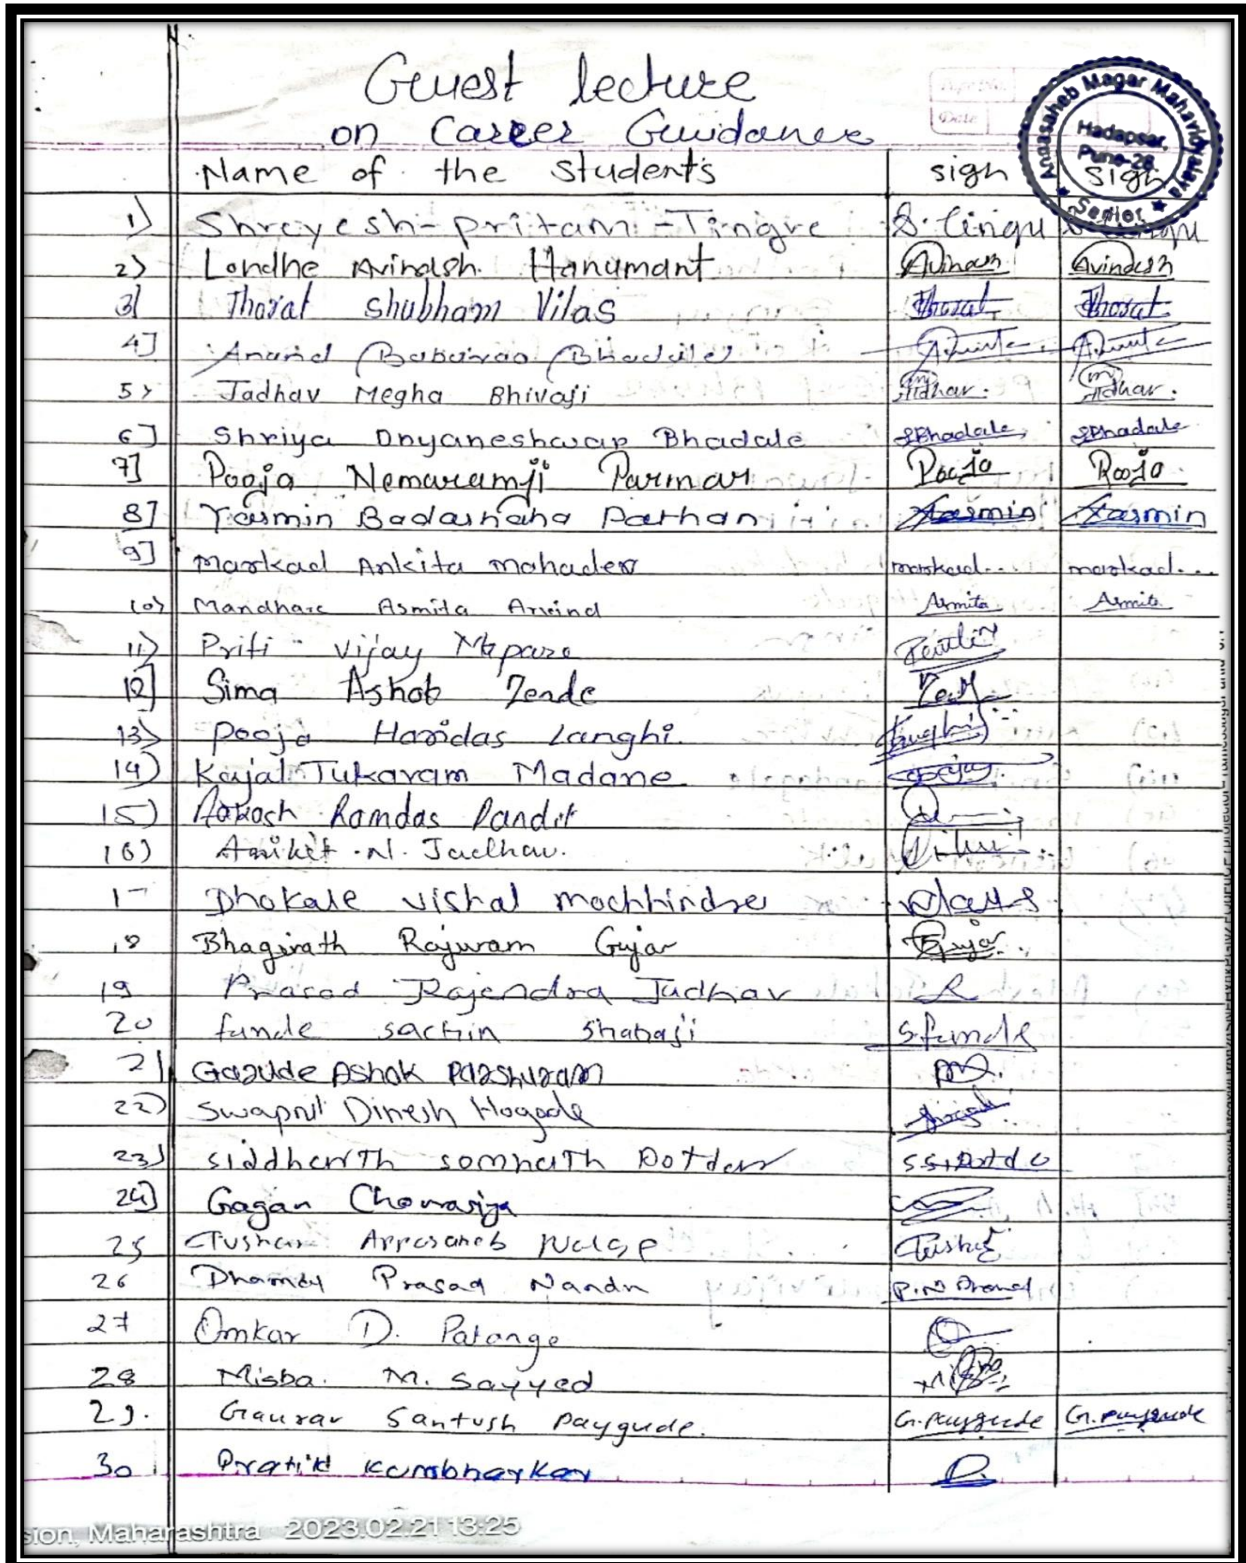 Guest lecture
on Career Guidance
Page No.
Date
Annasaheb Magar Mahavidyalaya
Hadapsar,
Pune-28.
★ Senior ★
Name of the Students sign Sign
1) Shreyesh-pritam-Tingre S. Tingre
2) Londhe Avinash. Hanumant Avinash Avinash
3) Thorat Shubham Vilas Thorat Thorat
4] Anand Baburao
5) Jadhav Megha Bhivaji Jadhav. Jadhav.
6] Shriya Dnyaneshwar Bhadale SBhadale SBhadale
7] Pooja Nemaramji Parmar Pooja Pooja
8] Yasmin Badashaha Pathan Yasmin Yasmin
9] Markad Ankita mahadev markad... markad...
10) Mandhare Asmita Arvind Asmita Asmita
11) Priti - Vijay
12] Sima Ashok Zende
13) Pooja Haridas Langhi.
14) Kajal Tukaram Madane
15) Aakash Ramdas Pandit
16) Aniket .N. Jadhav.
1- Dhokale vishal machhindre
18 Bhagirath Rajuram Gujar Gujar
19 Prasad Rajendra Jadhav
20 funde sachin shahaji S.funde
21 Garude Ashok Parshuram
22) Swapnil Dinesh Hogade
23) siddharth somnath Dotdar
24) Gagan Chourasiya
25 Tushar Appasaheb Tushar
26 Prasad Nandu
27 Omkar D. Patange
28 Misba. M. Sayyed
29. Gaurav Santosh Paygude. G.Paygude G.Paygude
30 Pratik Kumbharkar
sion, Maharashtra 2023.02.21 13:25